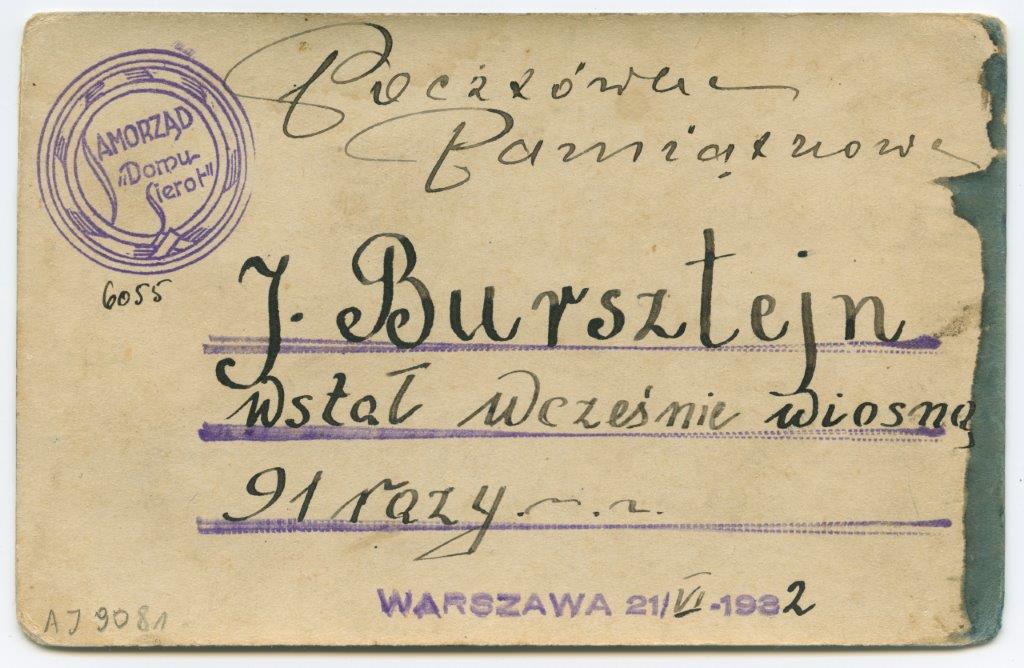 SAMORZĄD
„Domu
Sierot"
Pocztówka
Pamiątkowa
6055
J. Bursztejn
wstał wcześnie wiosną
91 razy.
WARSZAWA 21/VI-1932
AJ 9081